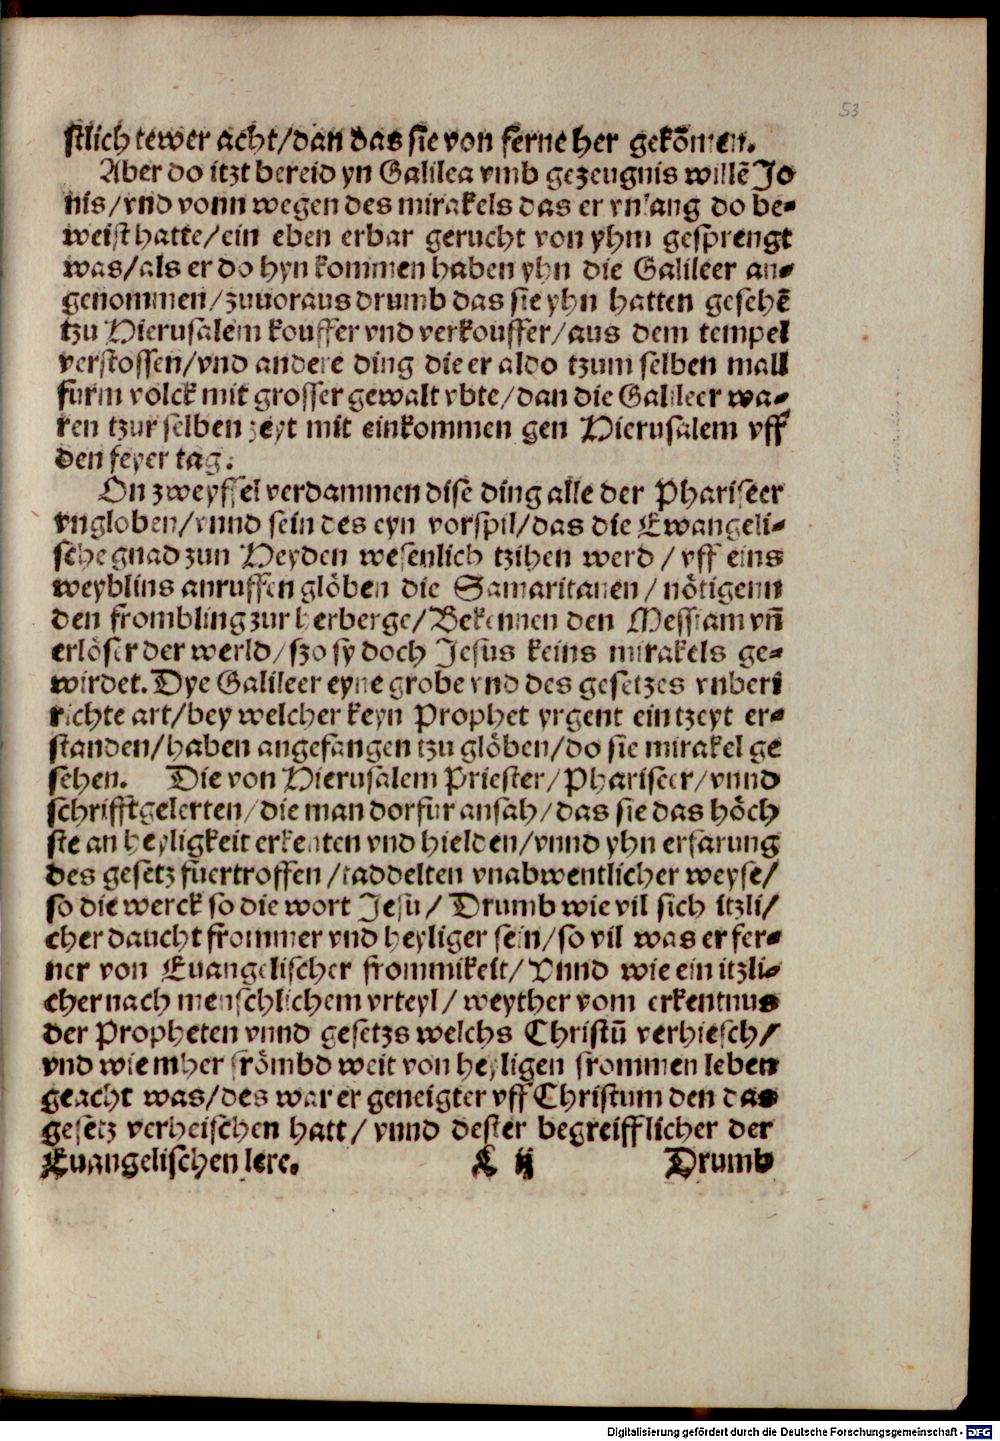 53
stlich tewer acht/dan das sie von ferne her gekōmen.
Aber do itzt bereid yn Galilea vmb gezeugnis willē Jo
nis/vnd vonn wegen des mirakels das er vnlang do be-
weist hatte/ein eben erbar gerucht von yhm gesprengt
was/als er do hyn kommen haben yhn die Galileer an-
genommen/zuuoraus drumb das sie yhn hatten gesehē
tzu Hierusalem kouffer vnd verkouffer/aus dem tempel
verstossen/vnd andere ding die er aldo tzum selben mall
furm volck mit grosser gewalt vbte/dan die Galileer wa-
ren tzur selben zeyt mit einkommen gen Hierusalem vff
den feyer tag.
On zweyffel verdammen dise ding alle der Phariseer
vngloben/vnnd sein des eyn vorspil/das die Ewangeli-
sche gnad zun Heyden wesenlich tzihen werd / vff eins
weyblins anruffen glöben die Samaritanen / nötigenn
den frombling zur herberge/Bekennen den Messiam vn̄
erlöser der werld/szo sy doch Jesus keins mirakels ge-
wirdet. Dye Galileer eyne grobe vnd des gesetzes vnberi
richte art/bey welcher keyn Prophet yrgent ein tzeyt er-
standen/haben angefangen tzu glöben/do sie mirakel ge
sehen. Die von Hierusalem Priester/Phariseer/vnnd
schrifftgelerten/die man dorfur ansah/das sie das höch
ste an heyligkeit erkenten vnd hielden/vnnd yhn erfarung
des gesetz fuertroffen/taddelten vnabwentlicher weyse/
so die werck so die wort Jesu/ Drumb wie vil sich itzli/
cher daucht frommer vnd heyliger sein/so vil was er fer-
ner von Euangelischer frommikeit/ Vnnd wie ein itzli-
cher nach menschlichem vrteyl/ weyther vom erkentnus
der Propheten vnnd gesetzs welchs Christū verhiesch/
vnd wie mher frömbd weit von heyligen frommen leben
geacht was/des war er geneigter vff Christum den das
gesetz verheischen hatt/ vnnd dester begreifflicher der
Euangelischen lere. L ij Drumb
Digitalisierung gefördert durch die Deutsche Forschungsgemeinschaft - DFG